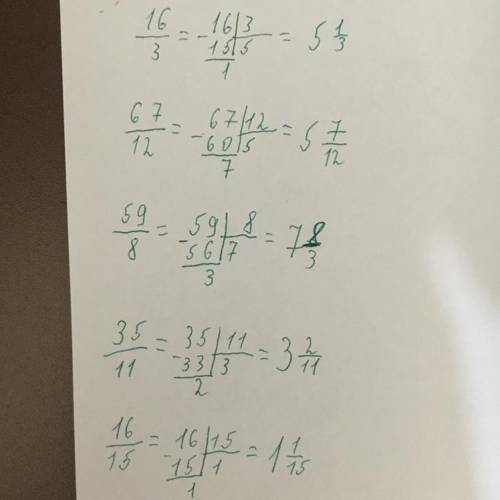 16/3 = -16|3 15|5 1 = 5 1/3
67/12 = -67|12 60|5 7 = 5 7/12
59/8 = -59|8 56|7 3 = 7 8/3
35/11 = -35|11 33|3 2 = 3 2/11
16/15 = -16|15 15|1 1 = 1 1/15